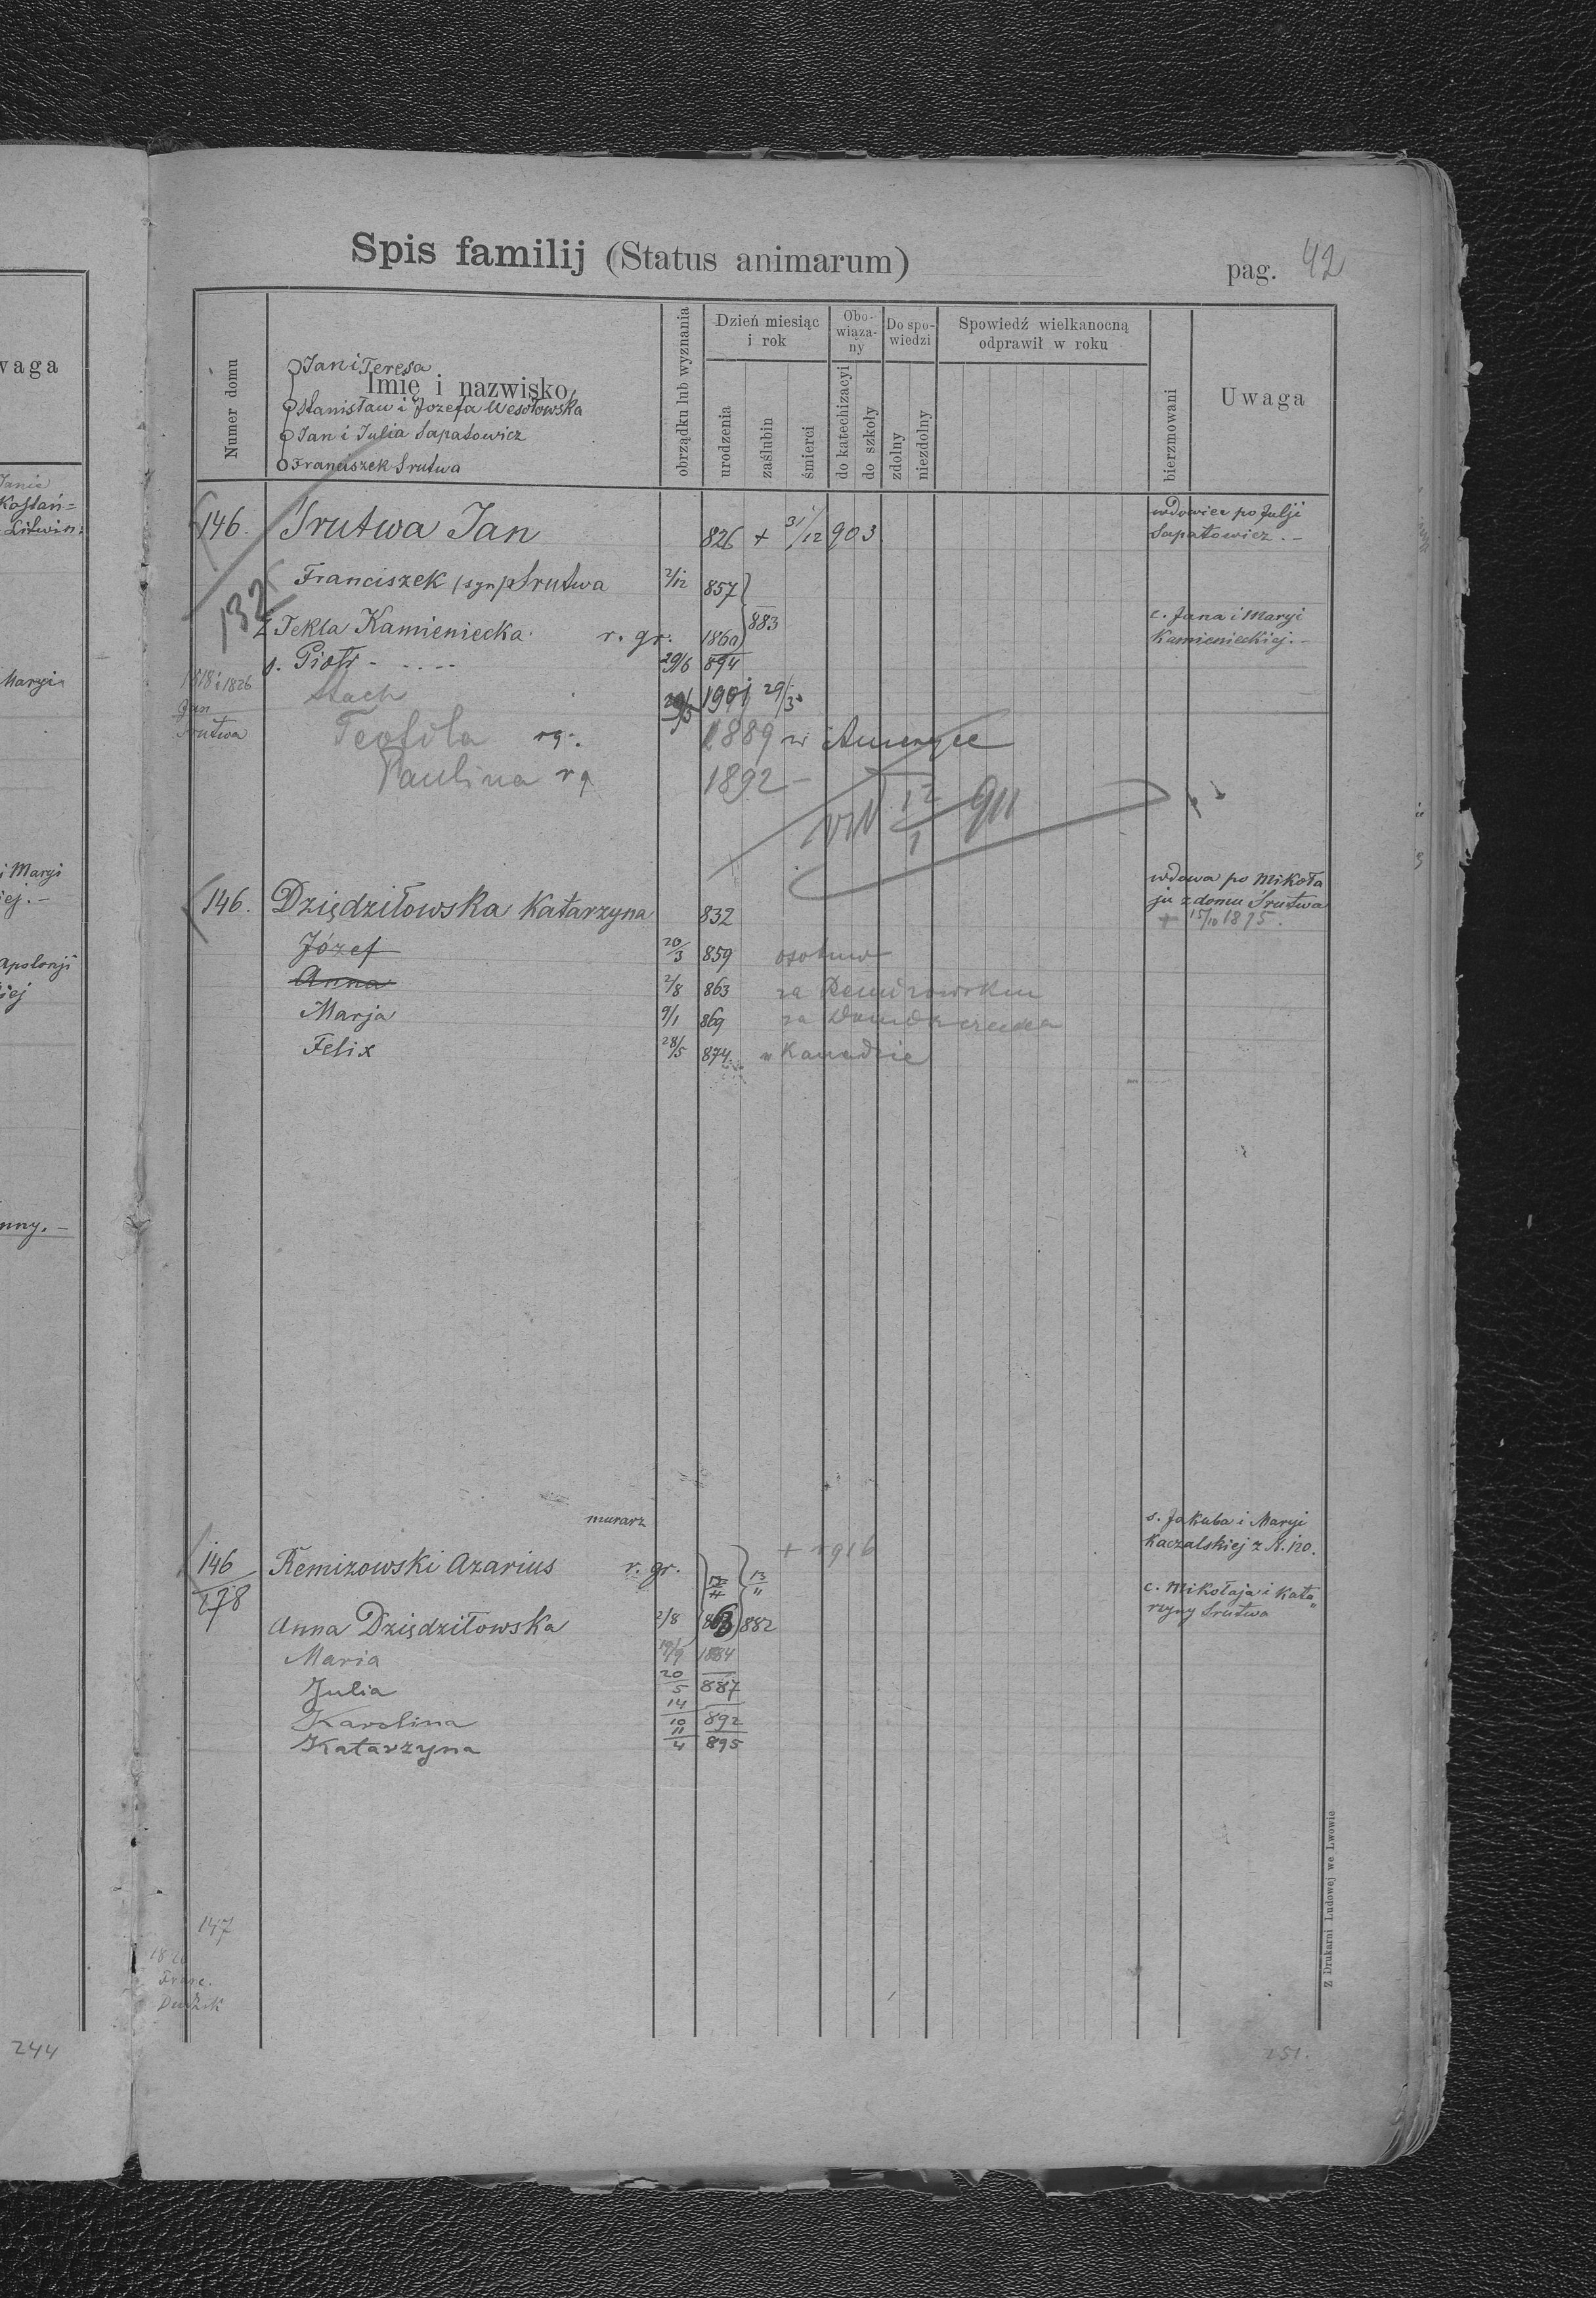 Spis familij (Status animarum)
pag. 42
Numer domu
Jan i Teresa
Imię i nazwisko
Stanisław i Jozefa Wesołowska
Jan i Julia Sapatowicz
Franciszek Srutwa
obrządku lub wyznania
Dzień miesiąc i rok
urodzenia
zaślubin
śmierci
Obowiąza-ny
do katechizacyi
do szkoły
Do spo-wiedzi
zdolny
niezdolny
Spowiedź wielkanocną
odprawił w roku
bierzmowani
Uwaga
146. Srutwa Jan 826 + 31/12 903 wdowiec po Julji
Sapatowicz. –
132
Franciszek (syn) Srutwa 2/12 857
ż Tekla Kamieniecka r. gr. 1860 883 c. Jana i Maryi
Kamienieckiej. –
s. Piotr - . . . . 29/6 894
1818 i 1826
Jan
Srutwa
Stach 1901 29/3
Teofila rg. 1889 w Ameryce
Paulina rg 1892 –
12/1 911
146. Dziędziłowska Katarzyna 832 wdowa po Mikoła
ju z domu Srutwa
+ 15/10 1895.
Józef 20/3 859 osobno
Anna 2/8 863 za Remizowskim
Marja 9/1 869 za
Felix 28/5 874. w Kanadzie
murarz
146
278
Remizowski Azarius r. gr. + 1916 13/11 s. Jakuba i Maryi
Kaczalskiej z N. 120.
Anna Dziędziłowska 2/8 863 882 c. Mikołaja i Kata„
rzyny Srutwa
Maria 19/9 1884
Julia 20/5 887
Karolina 14/10 892
Katarzyna 11/4 895
147
Franc.
Z Drukarni Ludowej we Lwowie
244
251.
waga
Kostań=
Litwin
Maryi
i Maryi
iej. –
Apolonji
iej
nny. –